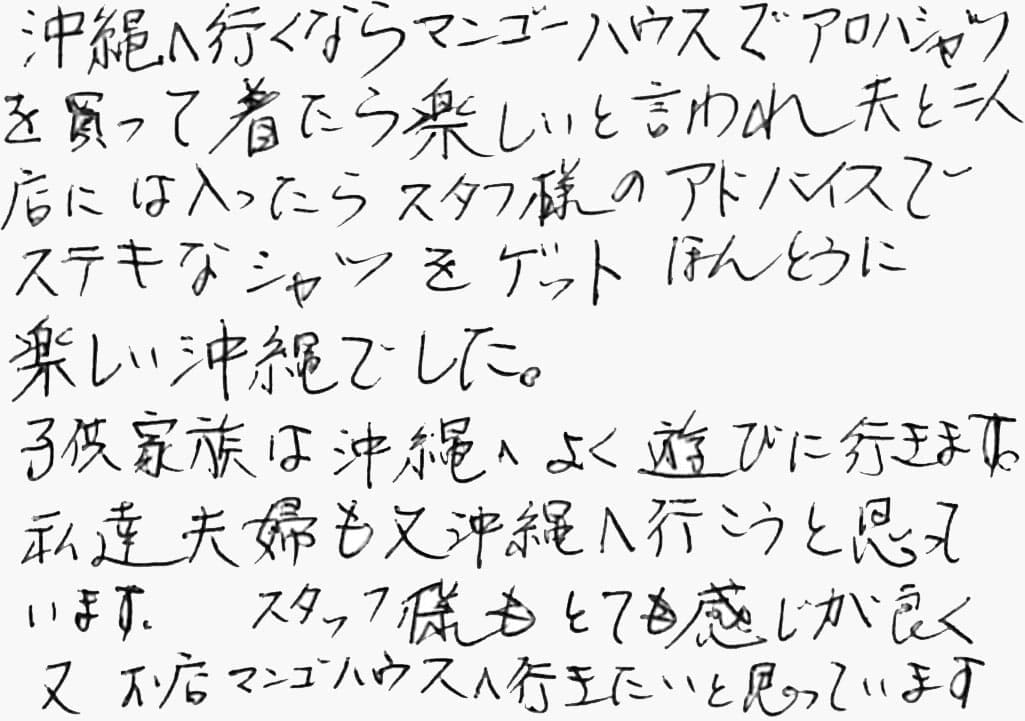 沖縄へ行くならマンゴーハウスでアロハシャツ
を買って着たら楽しいと言われ 夫と二人
店には入ったらスタフ様のアドバイスで
ステキなシャツをゲット ほんとうに
楽しい沖縄でした。
子供家族は沖縄へよく遊びに行きます。
私達夫婦も又沖縄へ行こうと思って
います。 スタッフ様もとても感じが良く
又 お店マンゴハウスへ行きたいと思っています